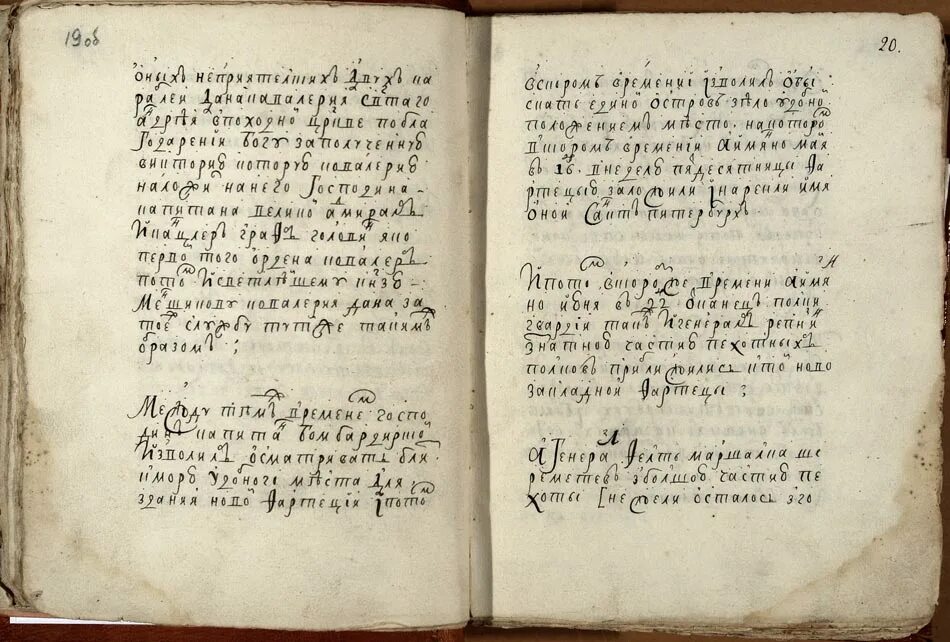 19об
оныхъ неприятелскихъ двухъ ка
ралей дана кавалерия святаго
андрѣя впоходной церкве побла
годарении богу за полученную
викторию которую кавалерию
наложил нанего Господина
капитана великой адмиралъ
и канцлеръ графъ головин яко
первой того ордена кавалеръ
потом и светлѣйшему князю
Меншикову кавалерия дана за
тое службу тутже такимъ
образомъ ;
Между тѣмъ времене госпо
динъ капитан бомбардирской
изволилъ осматривать бли
к морю удобного мѣста для
здания новой Фартецїи и потом
20.
вскором времени изволилъ оты
скать единой островъ зѣло удобной
положениемъ мѣсто. на котором
вскоромъ времени а имянно мая
въ 16. в неделю пядесятницы фа
ртецыю заложили и нарекли имя
оной Санктъ питербурхъ
И потом вскорое же времени а имян
но июня въ 22 д канец полки
гвардии такъ и генералъ репнин
знатною частию пехотныхъ
полковъ приближились к той ново
закладной Фартецы ;
а Генерал Фелтьмаршалка ше
реметевъ з болшою частию пе
хоты [нежели осталось з го